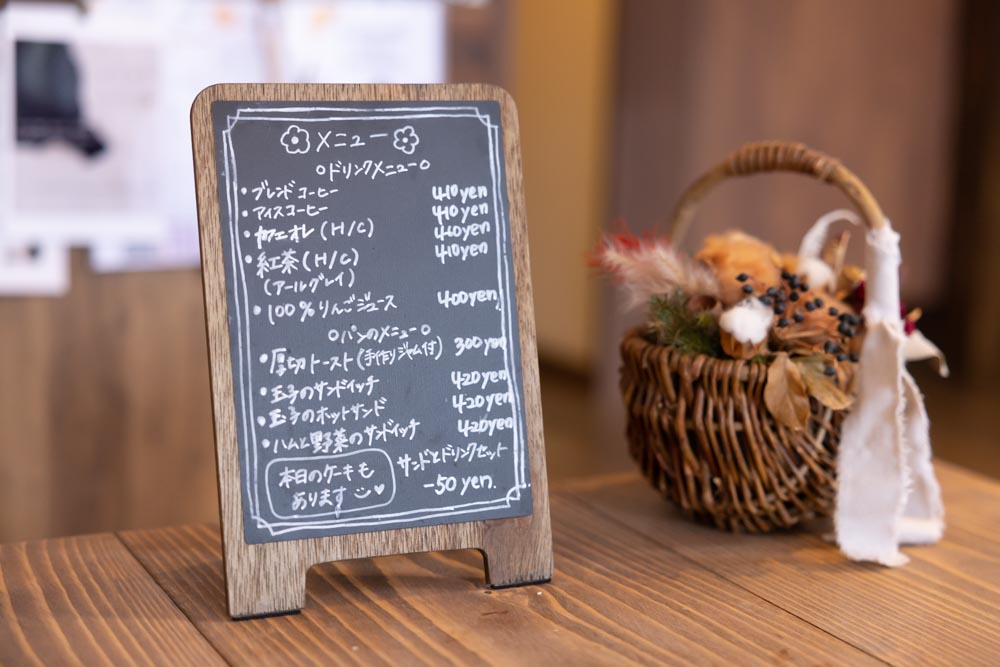 メニュー
○ドリンクメニュー○
・ブレンドコーヒー 410yen
・アイスコーヒー 410yen
・カフェオレ(H/C) 410yen
・紅茶(H/C) 410yen
(アールグレイ)
・100%りんごジュース 400yen
○パンのメニュー○
・厚切トースト(手作りジャム付) 300yen
・玉子のサンドイッチ 420yen
・玉子のホットサンド 420yen
・ハムと野菜のサンドイッチ 420yen
サンドとドリンクセット
-50yen.
本日のケーキも
あります